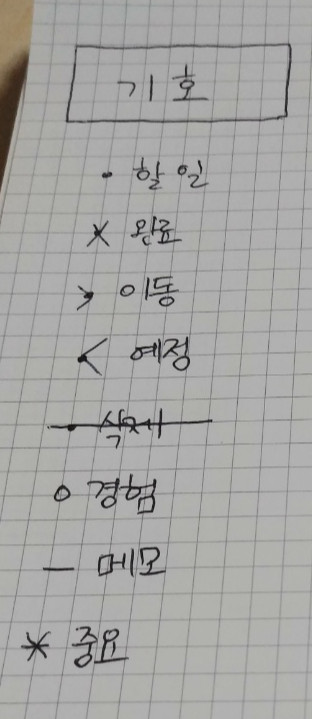 기호
• 할 일
× 완료
> 이동
< 예정
• 삭제
○ 경험
— 메모
* 중요